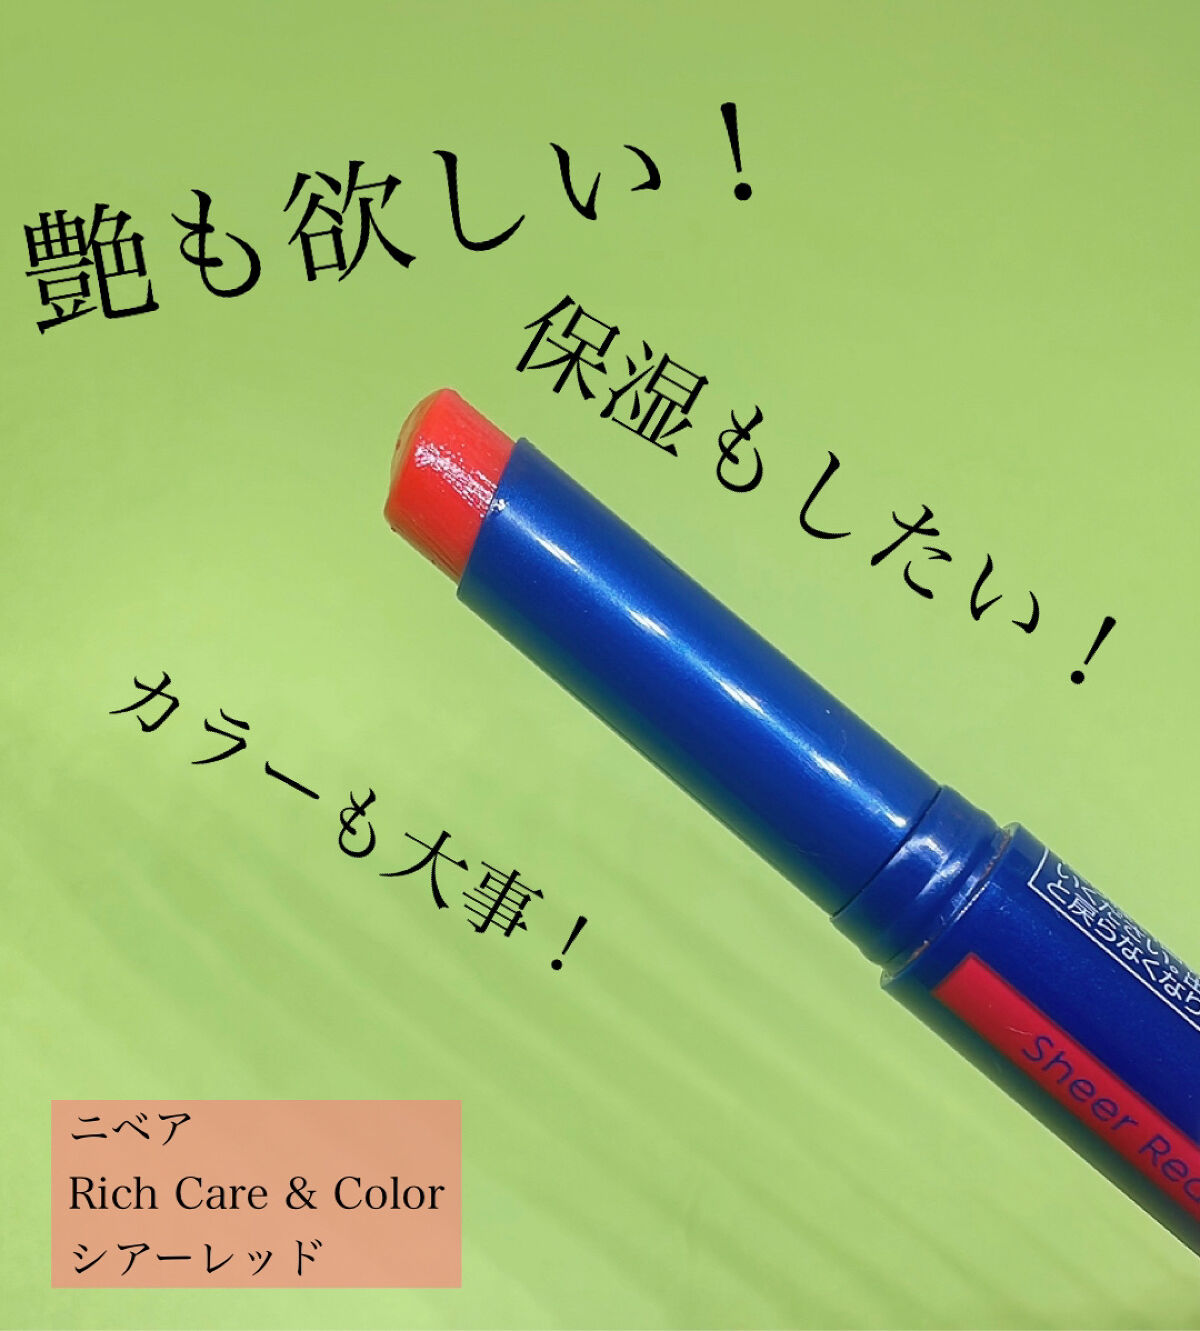 艶も欲しい！
保湿もしたい！
カラーも大事！
と戻らなくなり
Sheer Red
ニベア
Rich Care & Color
シアーレッド